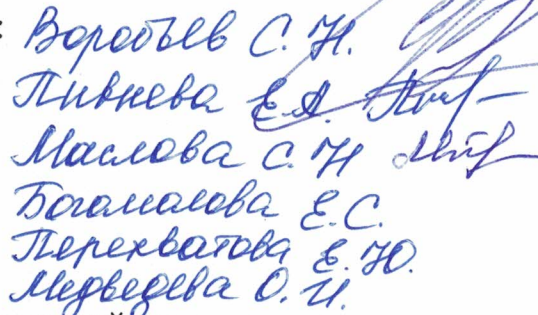 Воробьев С. Н.
Пивнева Е.А.
Маслова С. Н
Богомолова Е.С.
Перехватова Е.Ю.
Медведева О. И.